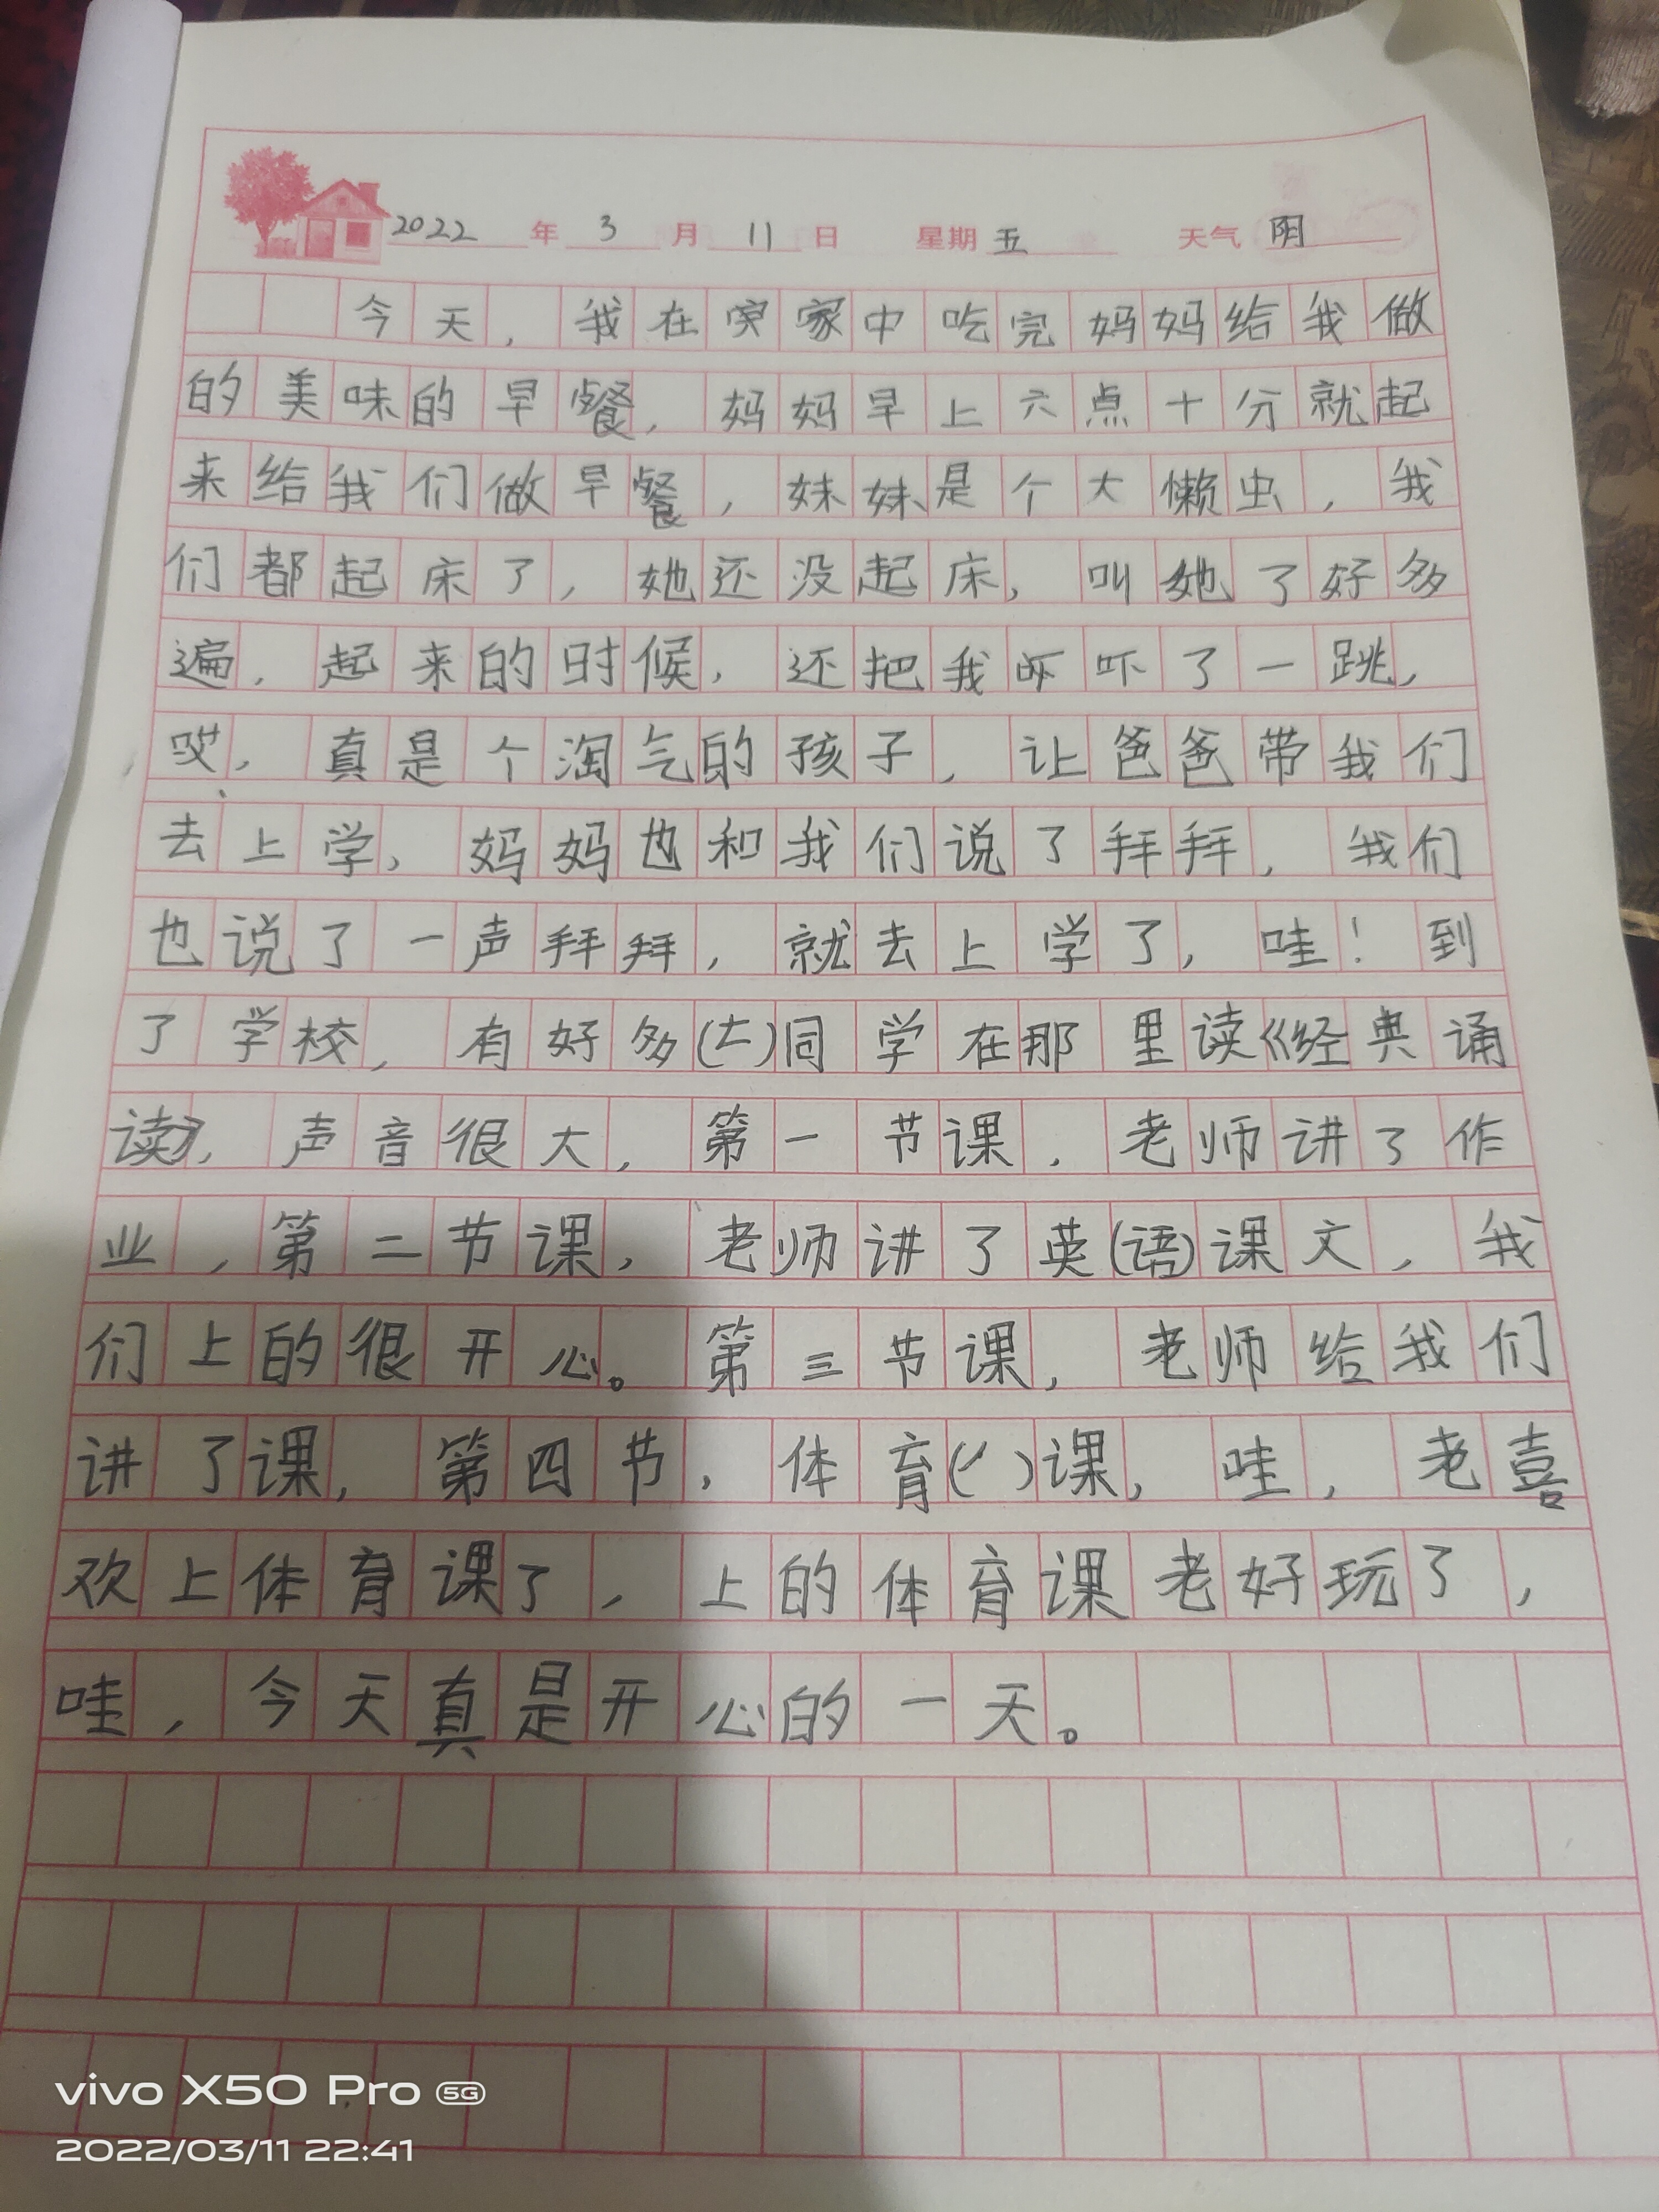 2022 年 3 月 11 日 星期 五 天气 阴
今天,我在家中吃完妈妈给我做
的美味的早餐,妈妈早上六点十分就起
来给我们做早餐,妹妹是个大懒虫,我
们都起床了,她还没起床,叫她了好多
遍,起来的时候,还把我吓了一跳,
哎,真是个淘气的孩子,让爸爸带我们
去上学,妈妈也和我们说了拜拜,我们
也说了一声拜拜,就去上学了,哇!到
了学校,有好多同学在那里读《经典诵
读》,声音很大,第一节课,老师讲了作
业,第二节课,老师讲了英(语)课文,我
们上的很开心。第三节课,老师给我们
讲了课,第四节,体育( )课,哇,老喜
欢上体育课了,上的体育课老好玩了,
哇,今天真是开心的一天。
vivo X50 Pro 5G
2022/03/11 22:41